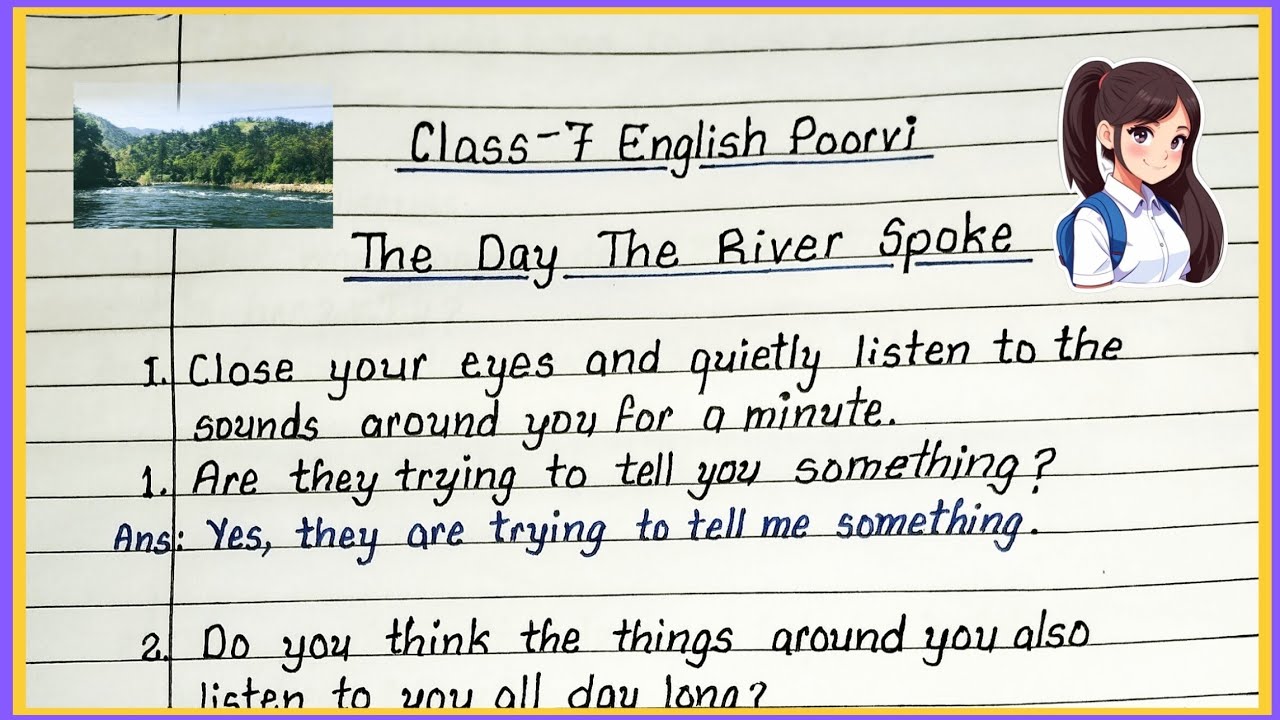 Class-7 English Poorvi
The Day The River Spoke
I. Close your eyes and quietly listen to the
sounds around you for a minute.
1. Are they trying to tell you something?
Ans: Yes, they are trying to tell me something.
2. Do you think the things around you also
listen to you all day long?